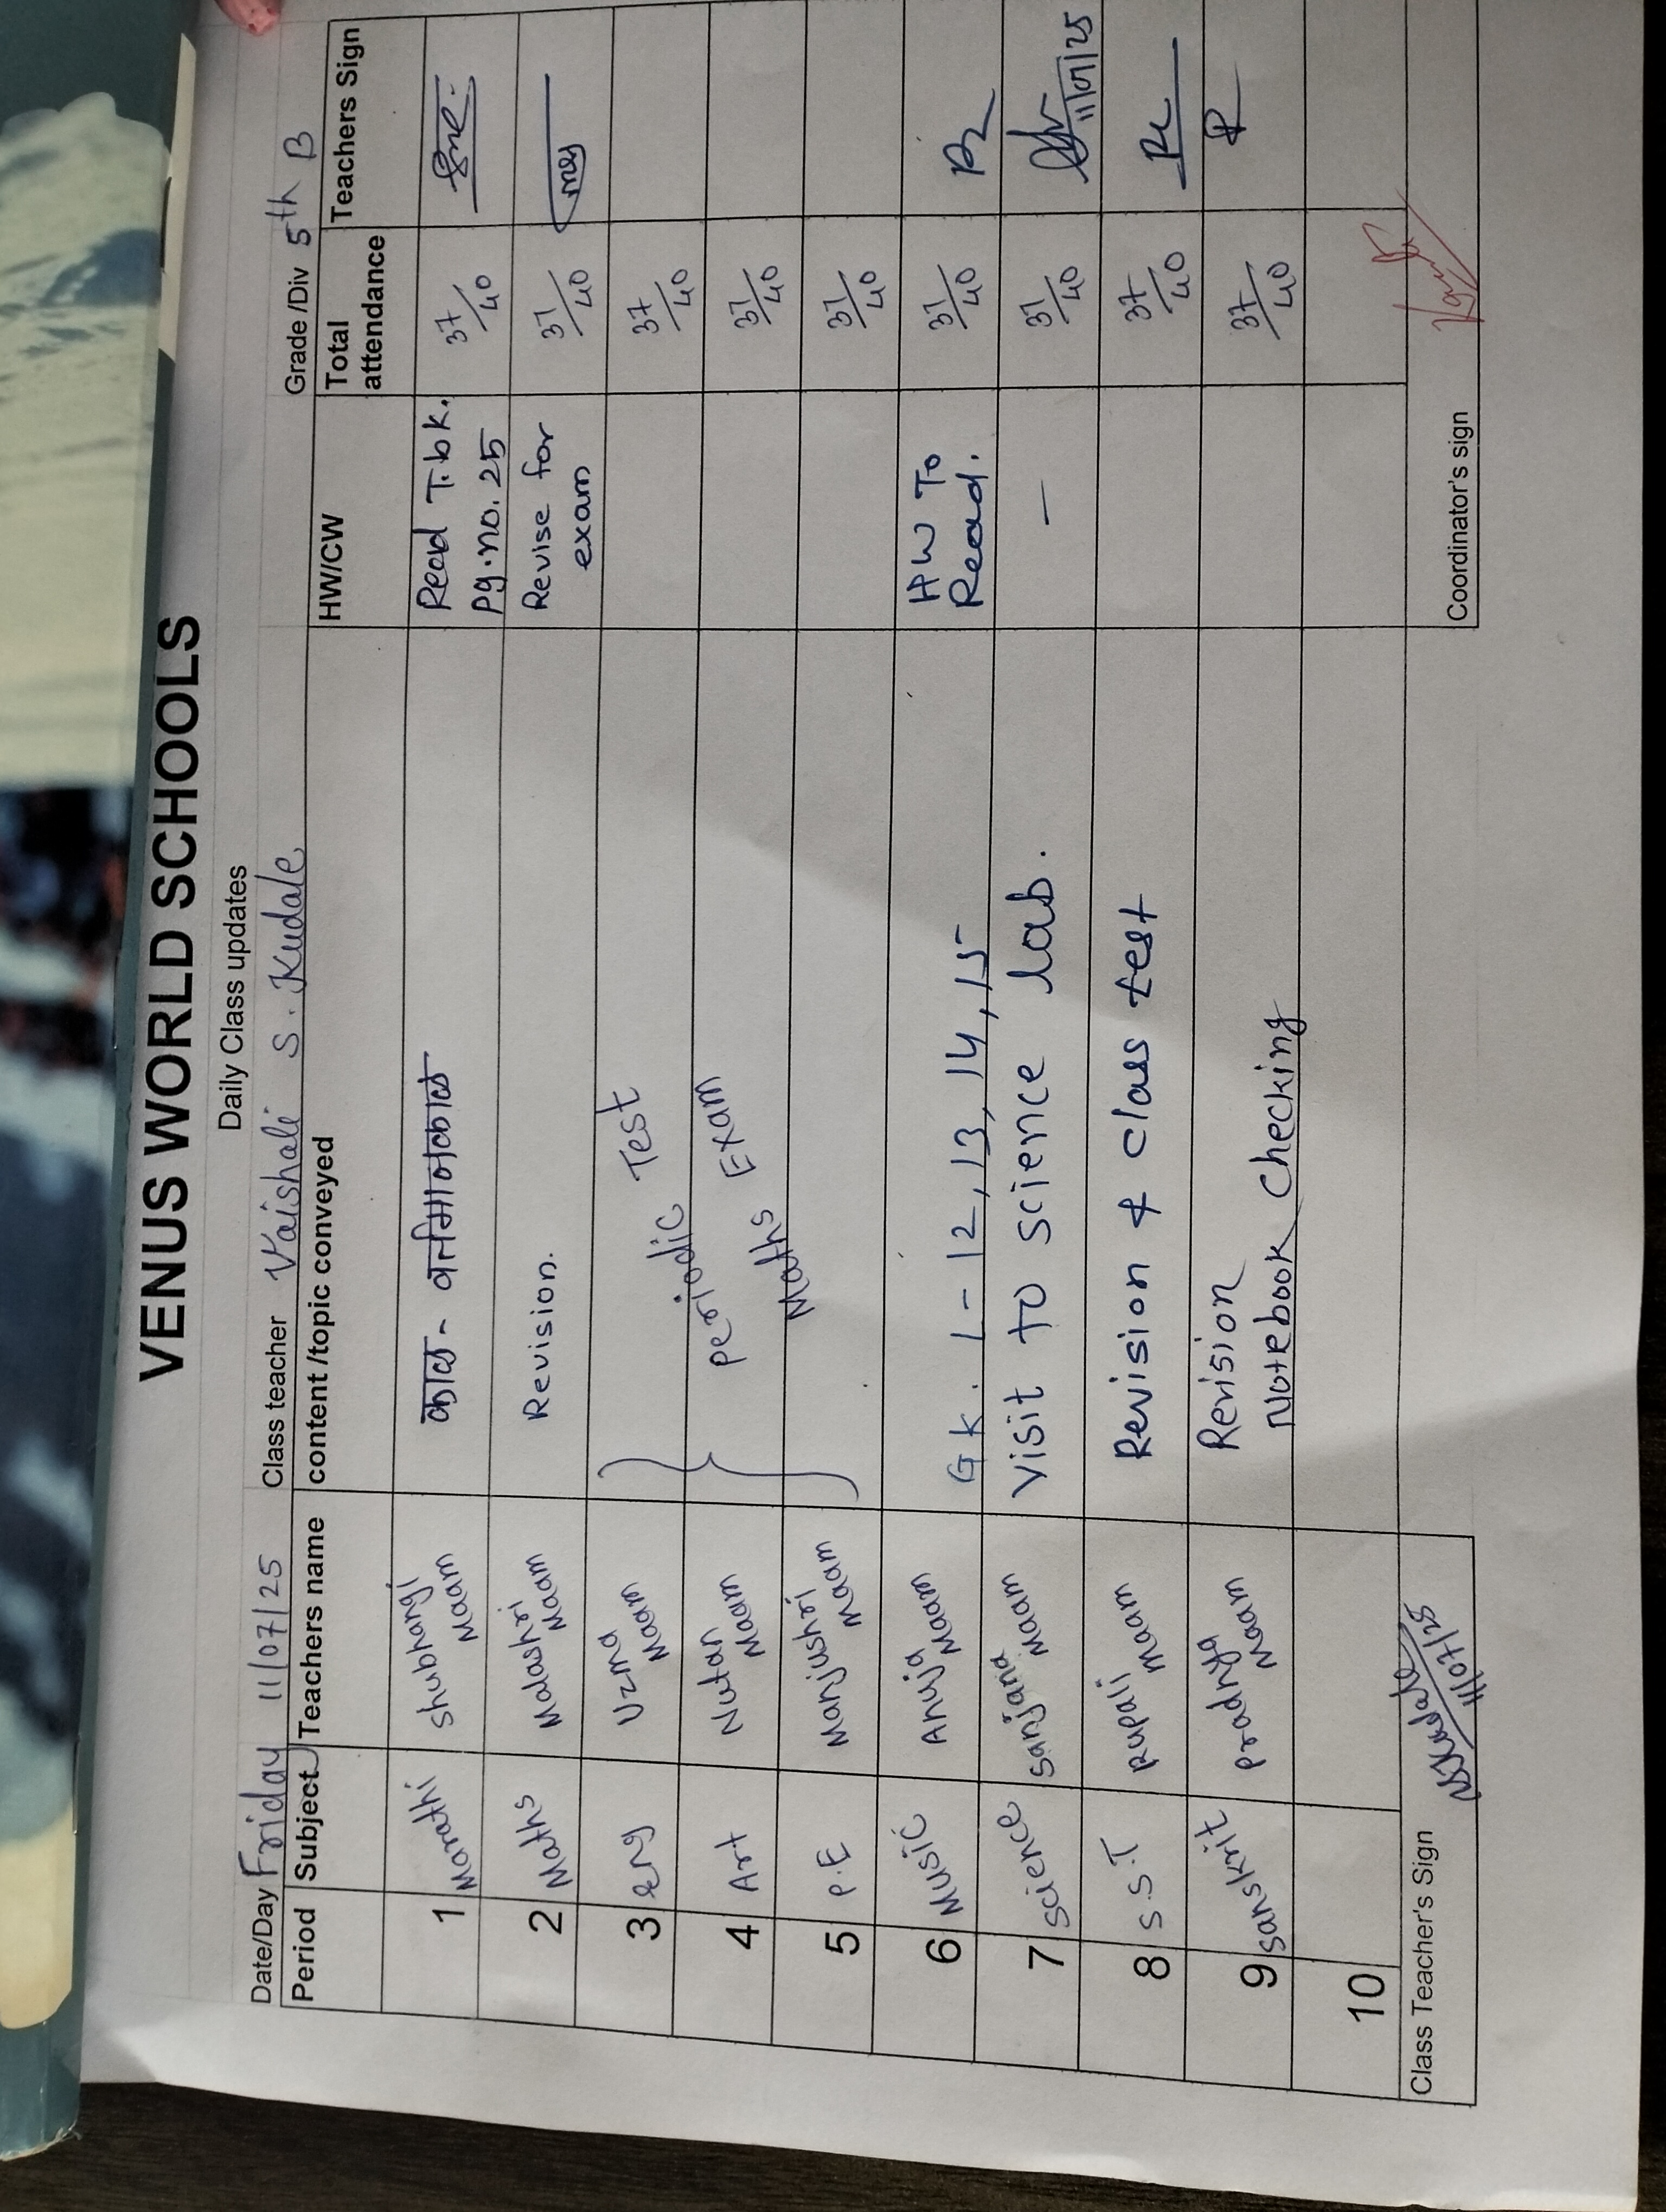 VENUS WORLD SCHOOLS
Daily Class updates
Date/Day Friday 11/07/25 Class teacher Vaishali S. Kudale Grade /Div 5th B
Period Subject Teachers name content /topic conveyed HW/CW Total attendance Teachers Sign
1 Marathi Shubhangi Maam काळ - वर्तमानकाळ Read T.bk. Pg.no. 25 37/40
2 Maths Malashri Maam Revision. Revise for exam 37/40
3 Eng Uzma Maam Periodic Test 37/40
4 Art Nutan Maam Periodic Exam 37/40
5 P.E Manjushri Maam Maths 37/40
6 Music Anuja Maam GK. L - 12, 13, 14, 15 HW To Read. 37/40
7 Science Sanjana Maam Visit to science lab. - 37/40 11/07/25
8 S.S.T Rupali Maam Revision & class test 37/40
9 Sanskrit Pradnya Maam Revision 37/40
Notebook Checking
10
Class Teacher's Sign VSKudale 11/07/25 Coordinator's sign